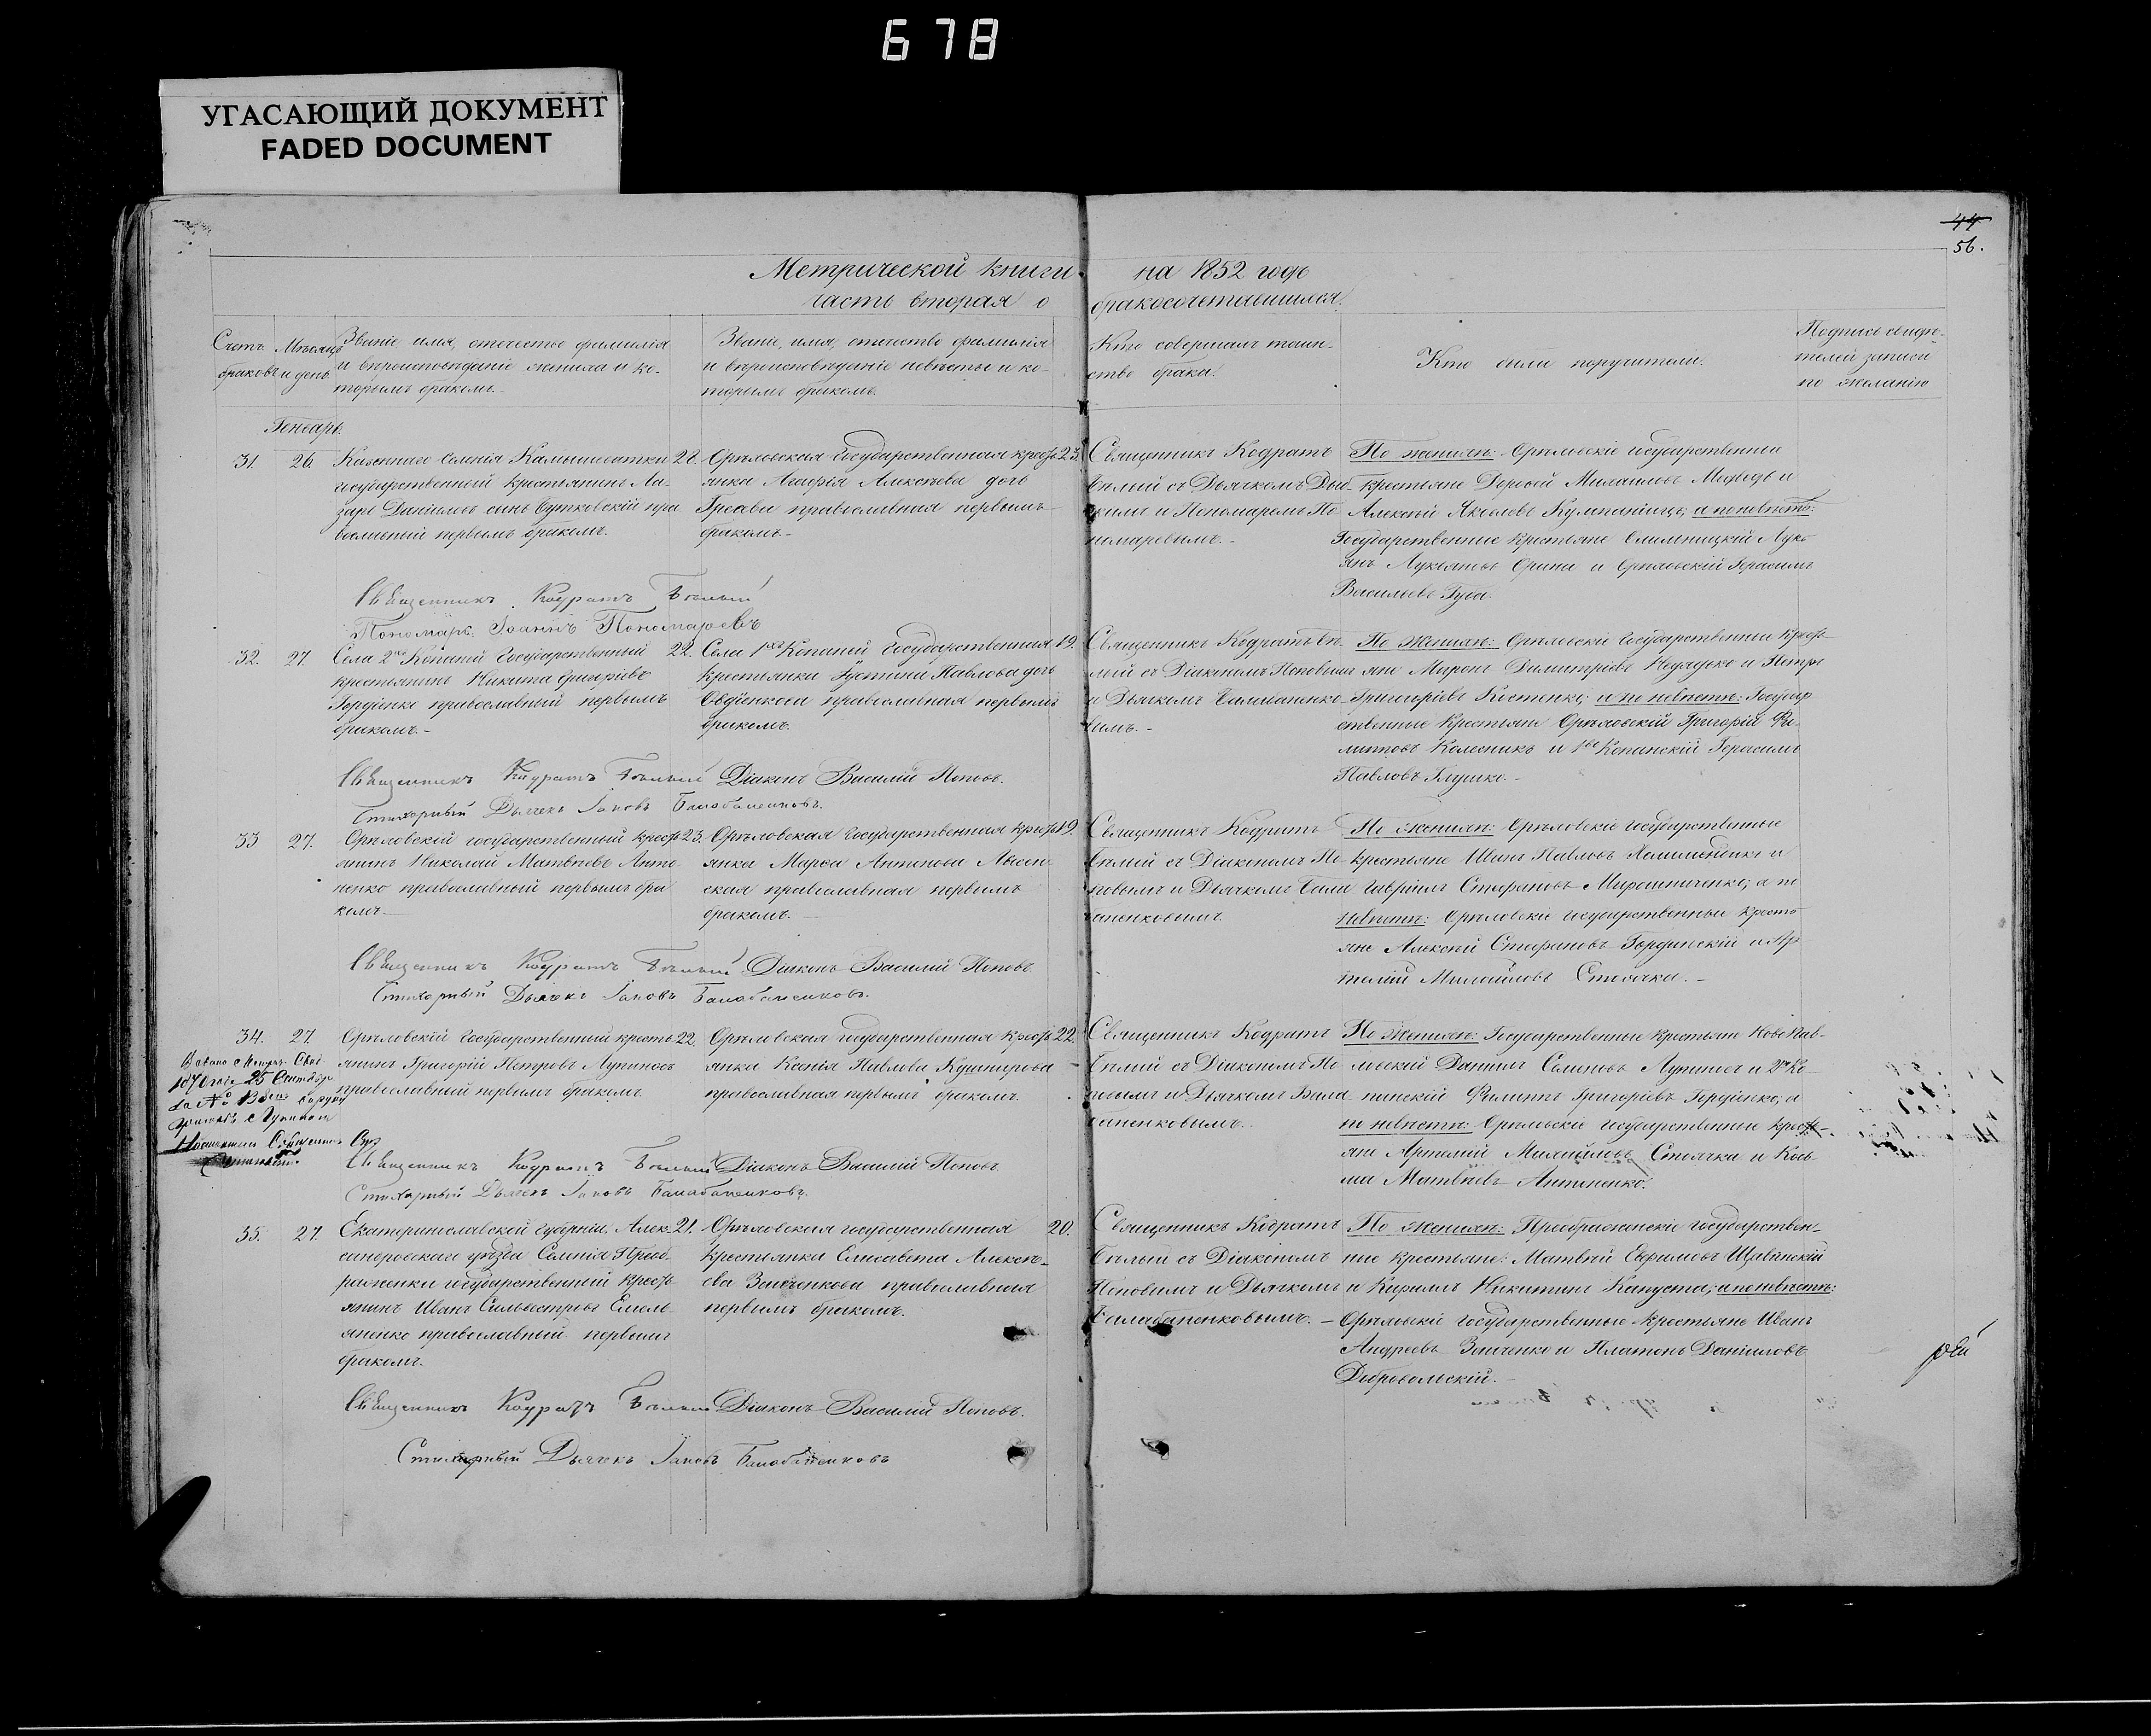 678
УГАСАЮЩИЙ ДОКУМЕНТ
FADED DOCUMENT
44
56.
Метрической книги на 1852 годъ
часть вторая о бракосочетавшихся.
Счетъ браковъ
Мѣсяцъ и день
Званіе имя, отечество фамилія
и вѣроисповѣданіе жениха и ко-
торымъ бракомъ.
Званіе, имя, отчество фамилія
и вѣроисповѣданіе невѣсты и ко-
торымъ бракомъ.
Кто совершалъ таин-
ство брака.
Кто были поручители.
Подпись свидѣ-
телей записи
по желанію
Генварь
31. 26
Казеннаго селенія Камышеватки
государственный крестьянинъ Ла-
зарь Даніиловъ сынъ Бутковскій пра
вославный первымъ бракомъ.
Орѣховская государственная крестъ 23.
янка Агафія Алексѣева дочь
православная первымъ
бракомъ.-
Священникъ Кодратъ
Бѣлый съ Дьячкомъ
и Пономаремъ По
номаревымъ.-
По женихѣ: Орѣховскіе государственные
крестьяне Михаиловъ и
Алексѣй Яковлевъ а по невѣстѣ:
Государственные крестьяне Луки
янъ Лукьяновъ и Орѣховскій Герасимъ
Васильевъ Губа.
Священникъ Кодратъ Бѣлый
Пономарь Іоаннъ Пономаревъ
32. 27.
Села 2хъ Копаній Государственный 22.
крестьянинъ Никита
Гордіенко православный первымъ
бракомъ.-
Села 1хъ Копаній Государственная 19.
крестьянка Іустина Павлова дочь
Овдіенкова православная первымъ
бракомъ.
Священникъ Кодратъ Бѣ-
лый съ Діакономъ Поповымъ
и Дьячкомъ Балабаненко
вымъ.-
По женихѣ: Орѣховскіе Государственные крестъ
яне Миронъ Димитріевъ и Петръ
Григорьевъ Костенко; а по невѣстѣ: Государ
ственные крестьяне Орѣховскій Григорій Фи
липповъ Колесникъ и 1во Копанскій Герасимъ
Павловъ Глушко.-
Священникъ Кодратъ Бѣлый Діаконъ Василій Поповъ.
Стихарный Дьячекъ Іаковъ Балабаненковъ.
33 27.
Орѣховскій государственный крестъ 23.
янинъ Николай Матвѣевъ Анти
ненко православный первымъ бра
комъ.-
Орѣховская государственная крестъ 19.
янка Марѳа Антонова Лысен
ская православная первымъ
бракомъ.-
Священникъ Кодратъ
Бѣлый съ Діакономъ По-
повымъ и Дьячкомъ Бала
баненковымъ
По женихѣ: Орѣховскіе государственные
крестьяне Иванъ Павловъ и
Гавріилъ Стефановъ Мирошниченко; а по
невѣстѣ: Орѣховскіе государственные кресть
яне Алексѣй Стефановъ Гординскій и Ар
темій Михайловъ Стоячка.-
Священникъ Кодратъ Бѣлый Діаконъ Василій Поповъ
Стихарный Дьячекъ Іаковъ Балабаненковъ.
34. 27.
25 Сентябр
Орѣховскій Государственный кресть 22.
янинъ Григорій Петровъ Лупиносъ
православный первымъ бракомъ
Орѣховская государственная крестъ 22.
янка Ксенія Павлова Кушнирова
православная первымъ бракомъ.
Священникъ Кодратъ
Бѣлый съ Діакономъ По
повымъ и Дьячкомъ Бала
баненковымъ.
По женихѣ: Государственные крестьяне Ново Пав-
ловскій Даніилъ Семеновъ Лупиносъ и 2хъ Ко-
панскій Филиппъ Григорьевъ Гордіенко; а
по невѣстѣ: Орѣховскіе государственные крестъ-
яне Артемій Михайловъ Стоячка и Козь-
ма Матвѣевъ Антиненко.
Священникъ Кодратъ Бѣлый Діаконъ Василій Поповъ
Стихарный Дьячекъ Іаковъ Балабаненковъ.
35. 27.
Екатеринославской губерніи, Алек- 21.
сандровскаго уѣзда Селенія Преоб
раженки государственный крестъ
янинъ Иванъ Сильвестровъ Емель-
яненко православный первымъ
бракомъ.
Орѣховская государственная 20.
крестьянка Елисавета Алексѣ-
ева Заиченкова православная
первымъ бракомъ.
Священникъ Кодратъ
Бѣлый съ Діакономъ
Поповымъ и Дьячкомъ
Балабаненковымъ.-
По женихѣ: Преображенскіе государствен-
ные крестьяне: Матвѣй Ефимовъ
и Кирилъ Никитинъ Капуста; а по невѣстѣ:
Орѣховскіе государственные крестьяне Иванъ
Андреевъ Заиченко и Платонъ Даніиловъ
Добровольскій.-
Священникъ Кодратъ Бѣлый Діаконъ Василій Поповъ.
Стихарный Дьячекъ Іаковъ Балабаненковъ